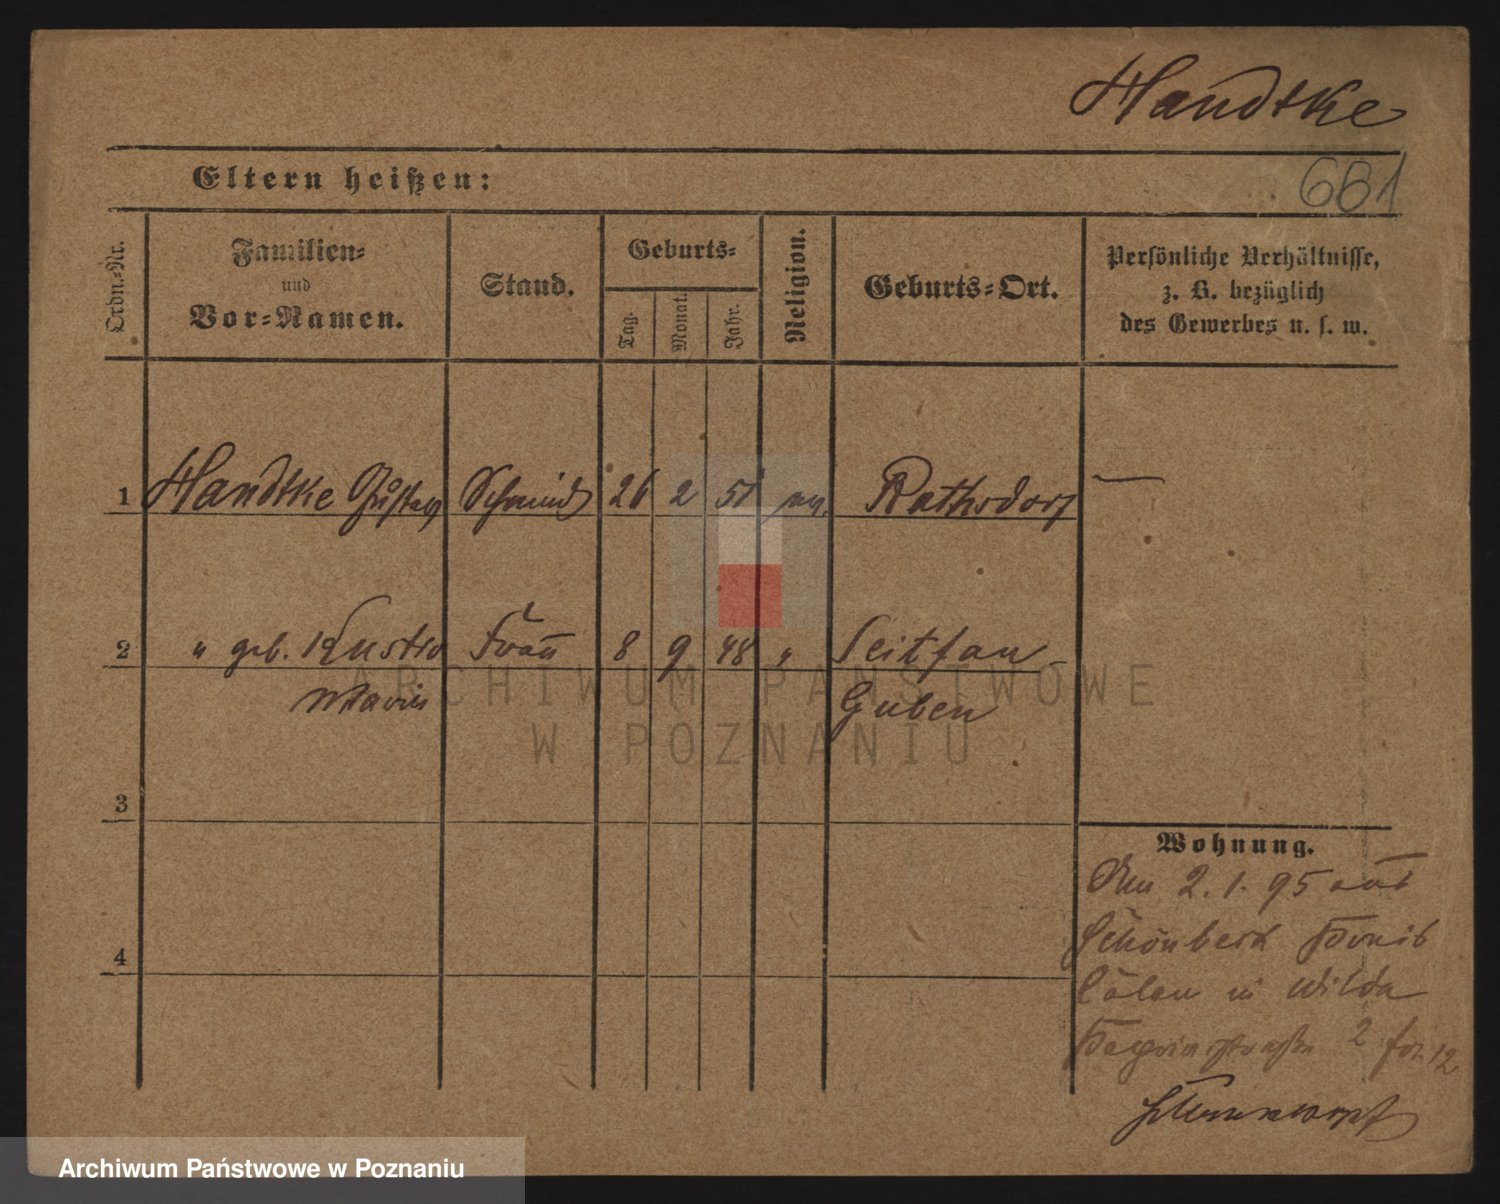 Handtke
Eltern heißen:
681
Ordn.-Nr.
Familien-
und
Vor-Namen.
Stand.
Geburts-
Tag.
Monat.
Jahr.
Religion.
Geburts-Ort.
Persönliche Verhältnisse,
z. B. bezüglich
des Gewerbes u. s. w.
1 Handtke Gustav Schmied 26 2 51 Rathsdorf —
2 " geb. Frau 8 9 48 "
Guben
3
4
Wohnung.
2. 1. 95 aus
in Wilda
2
ARCHIWUM PAŃSTWOWE
W POZNANIU
Archiwum Państwowe w Poznaniu